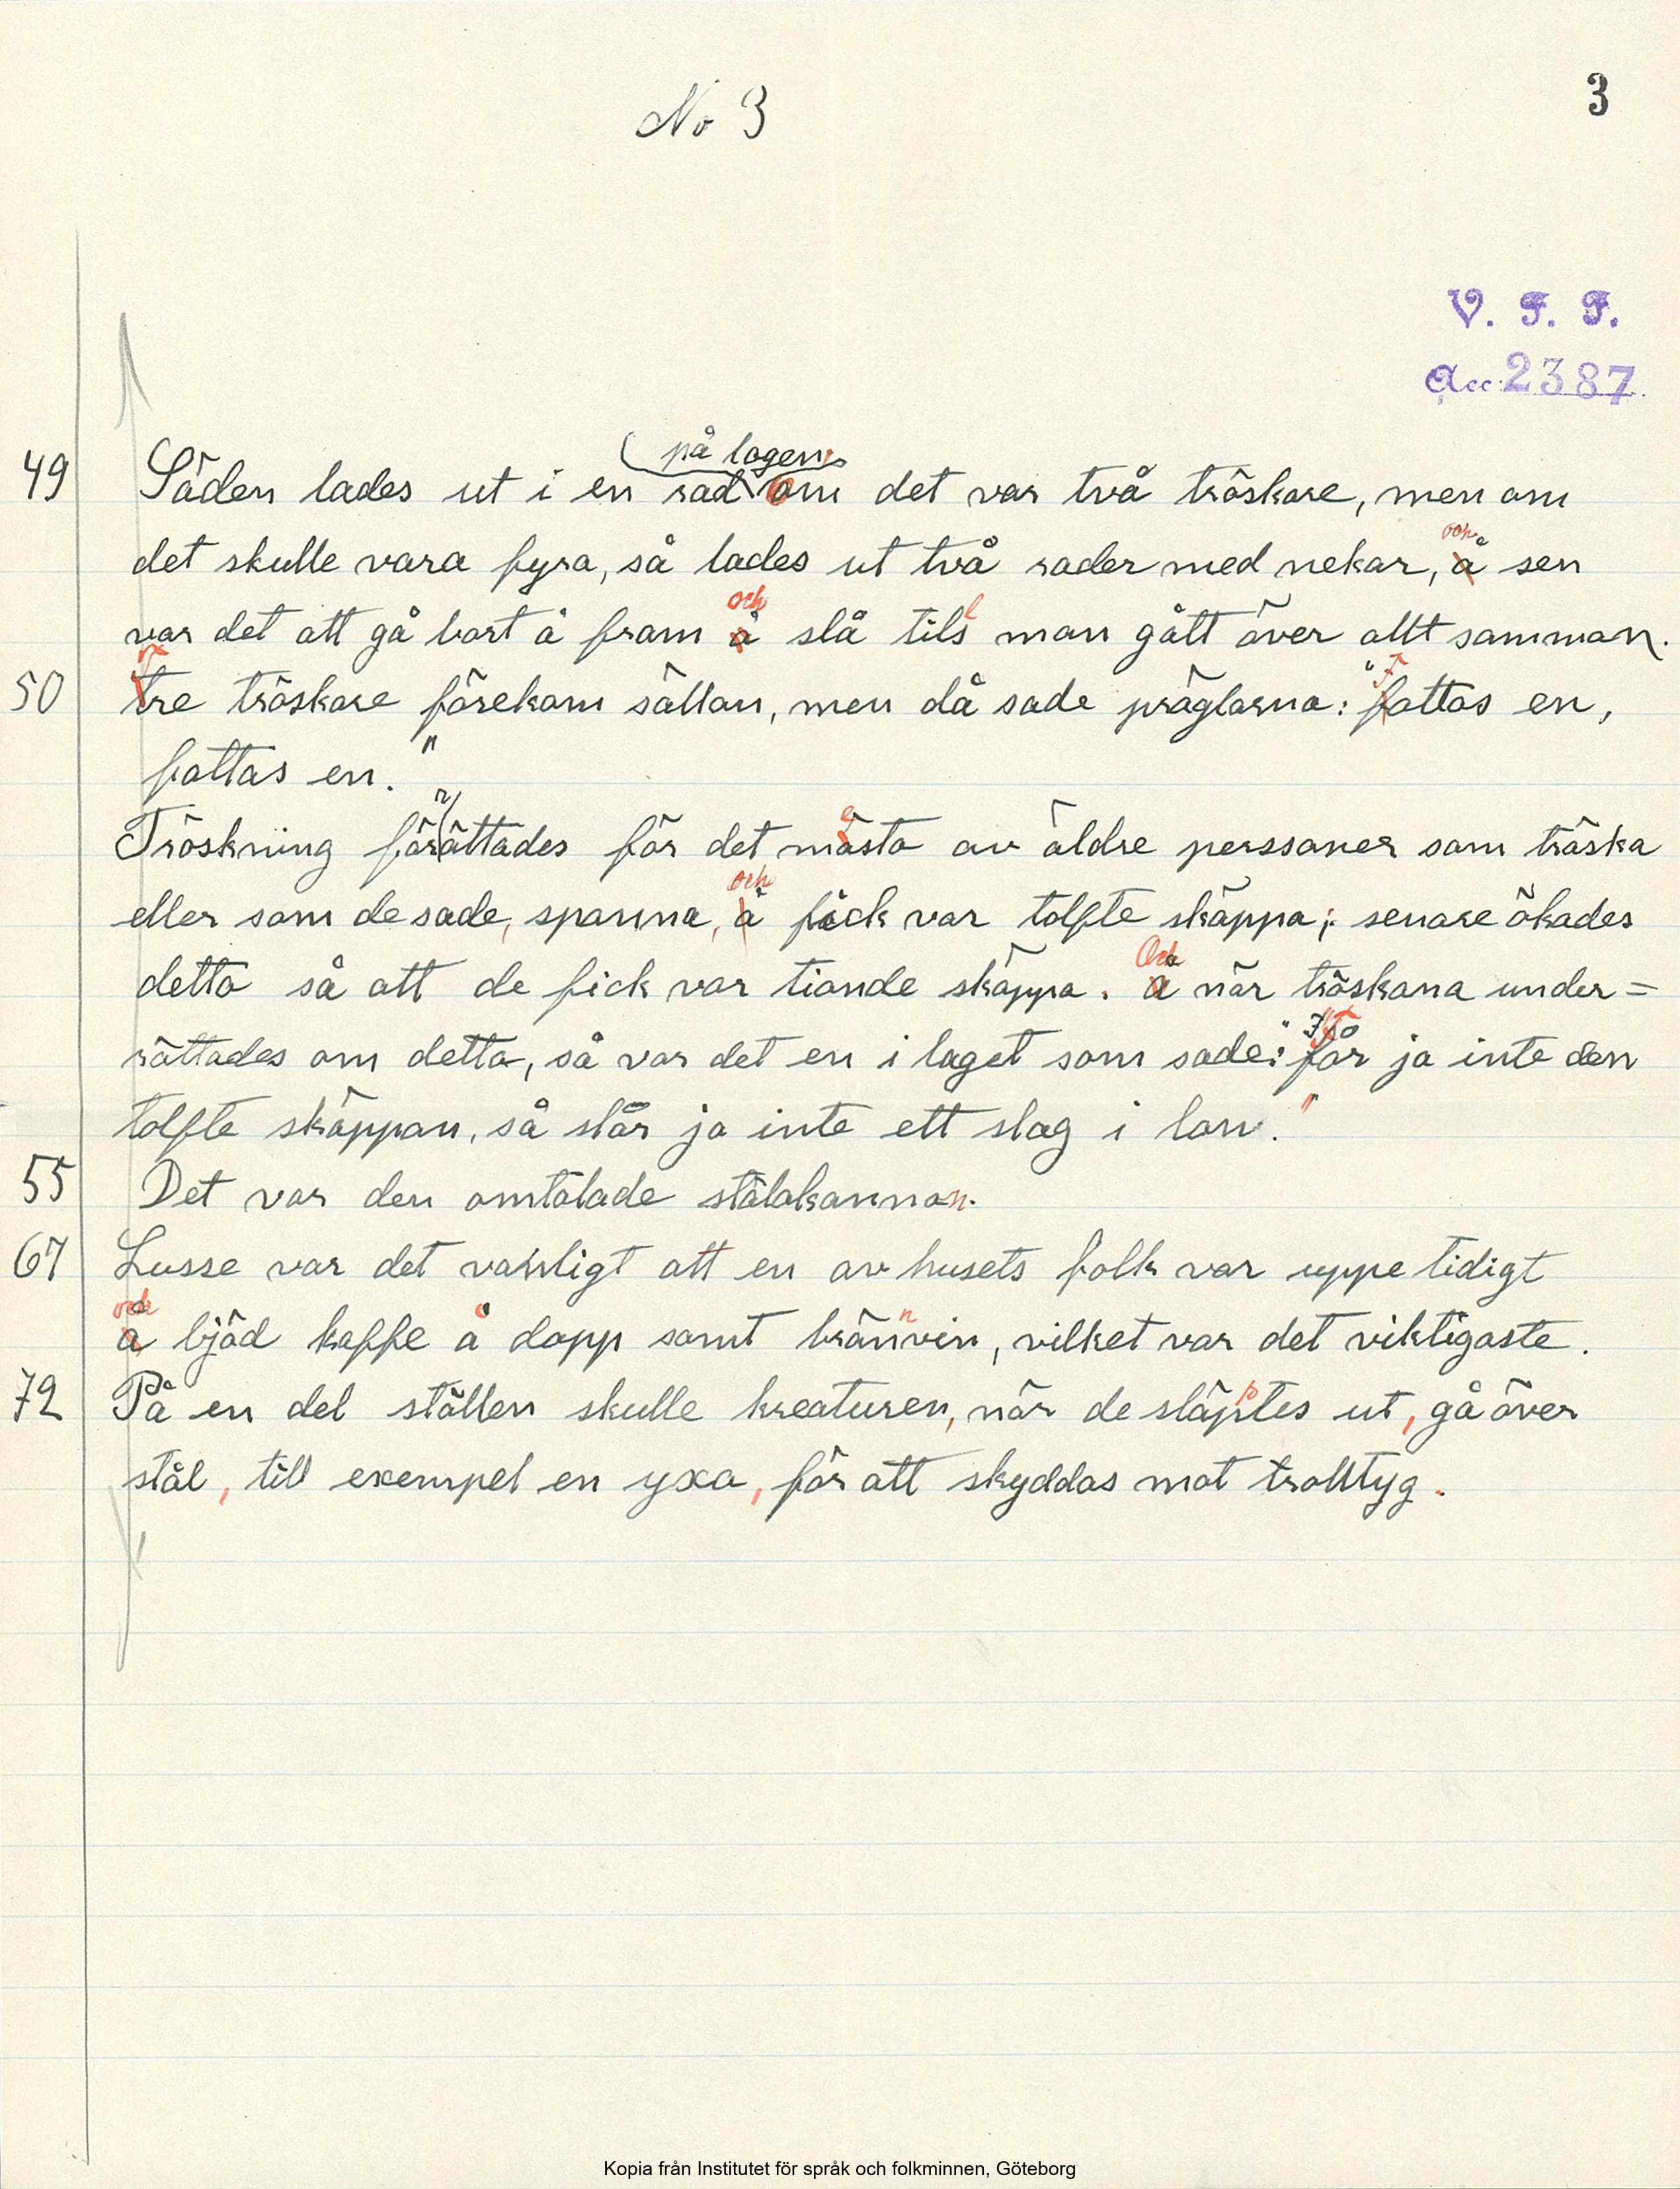 No 3
3
V. F. F.
Acc. 2387
på logen
49 Säden lades ut i en rad om det var två tröskare, men om
och
det skulle vara fyra, så lades ut två rader med nekar, å sen
och l
var det att gå bort å fram å slå tils man gått över allt samman.
50 Tre tröskare förekom sällan, men då sade präglarna: "Fattas en,
fattas en."
r e
Tröskning förättades för det mästa av äldre perssoner som tröska
och
eller som de sade, spanna, å fick var tolfte skäppa; senare ökades
Och
detta så att de fick var tionde skäppa. Å när tröskana under=
rättades om detta, så var det en i laget som sade: "får ja inte den
tolfte skäppan, så slår ja inte ett slag i lon."
55 Det var den omtalade stålakannan.
67 Lusse var det vanligt att en av husets folk var uppe tidigt
och n
å bjöd kaffe å dopp samt bränvin, vilket var det viktigaste.
p
72 På en del ställen skulle kreaturen, när de släptes ut, gå över
stål, till exempel en yxa, för att skyddas mot trolltyg.
Kopia från Institutet för språk och folkminnen, Göteborg